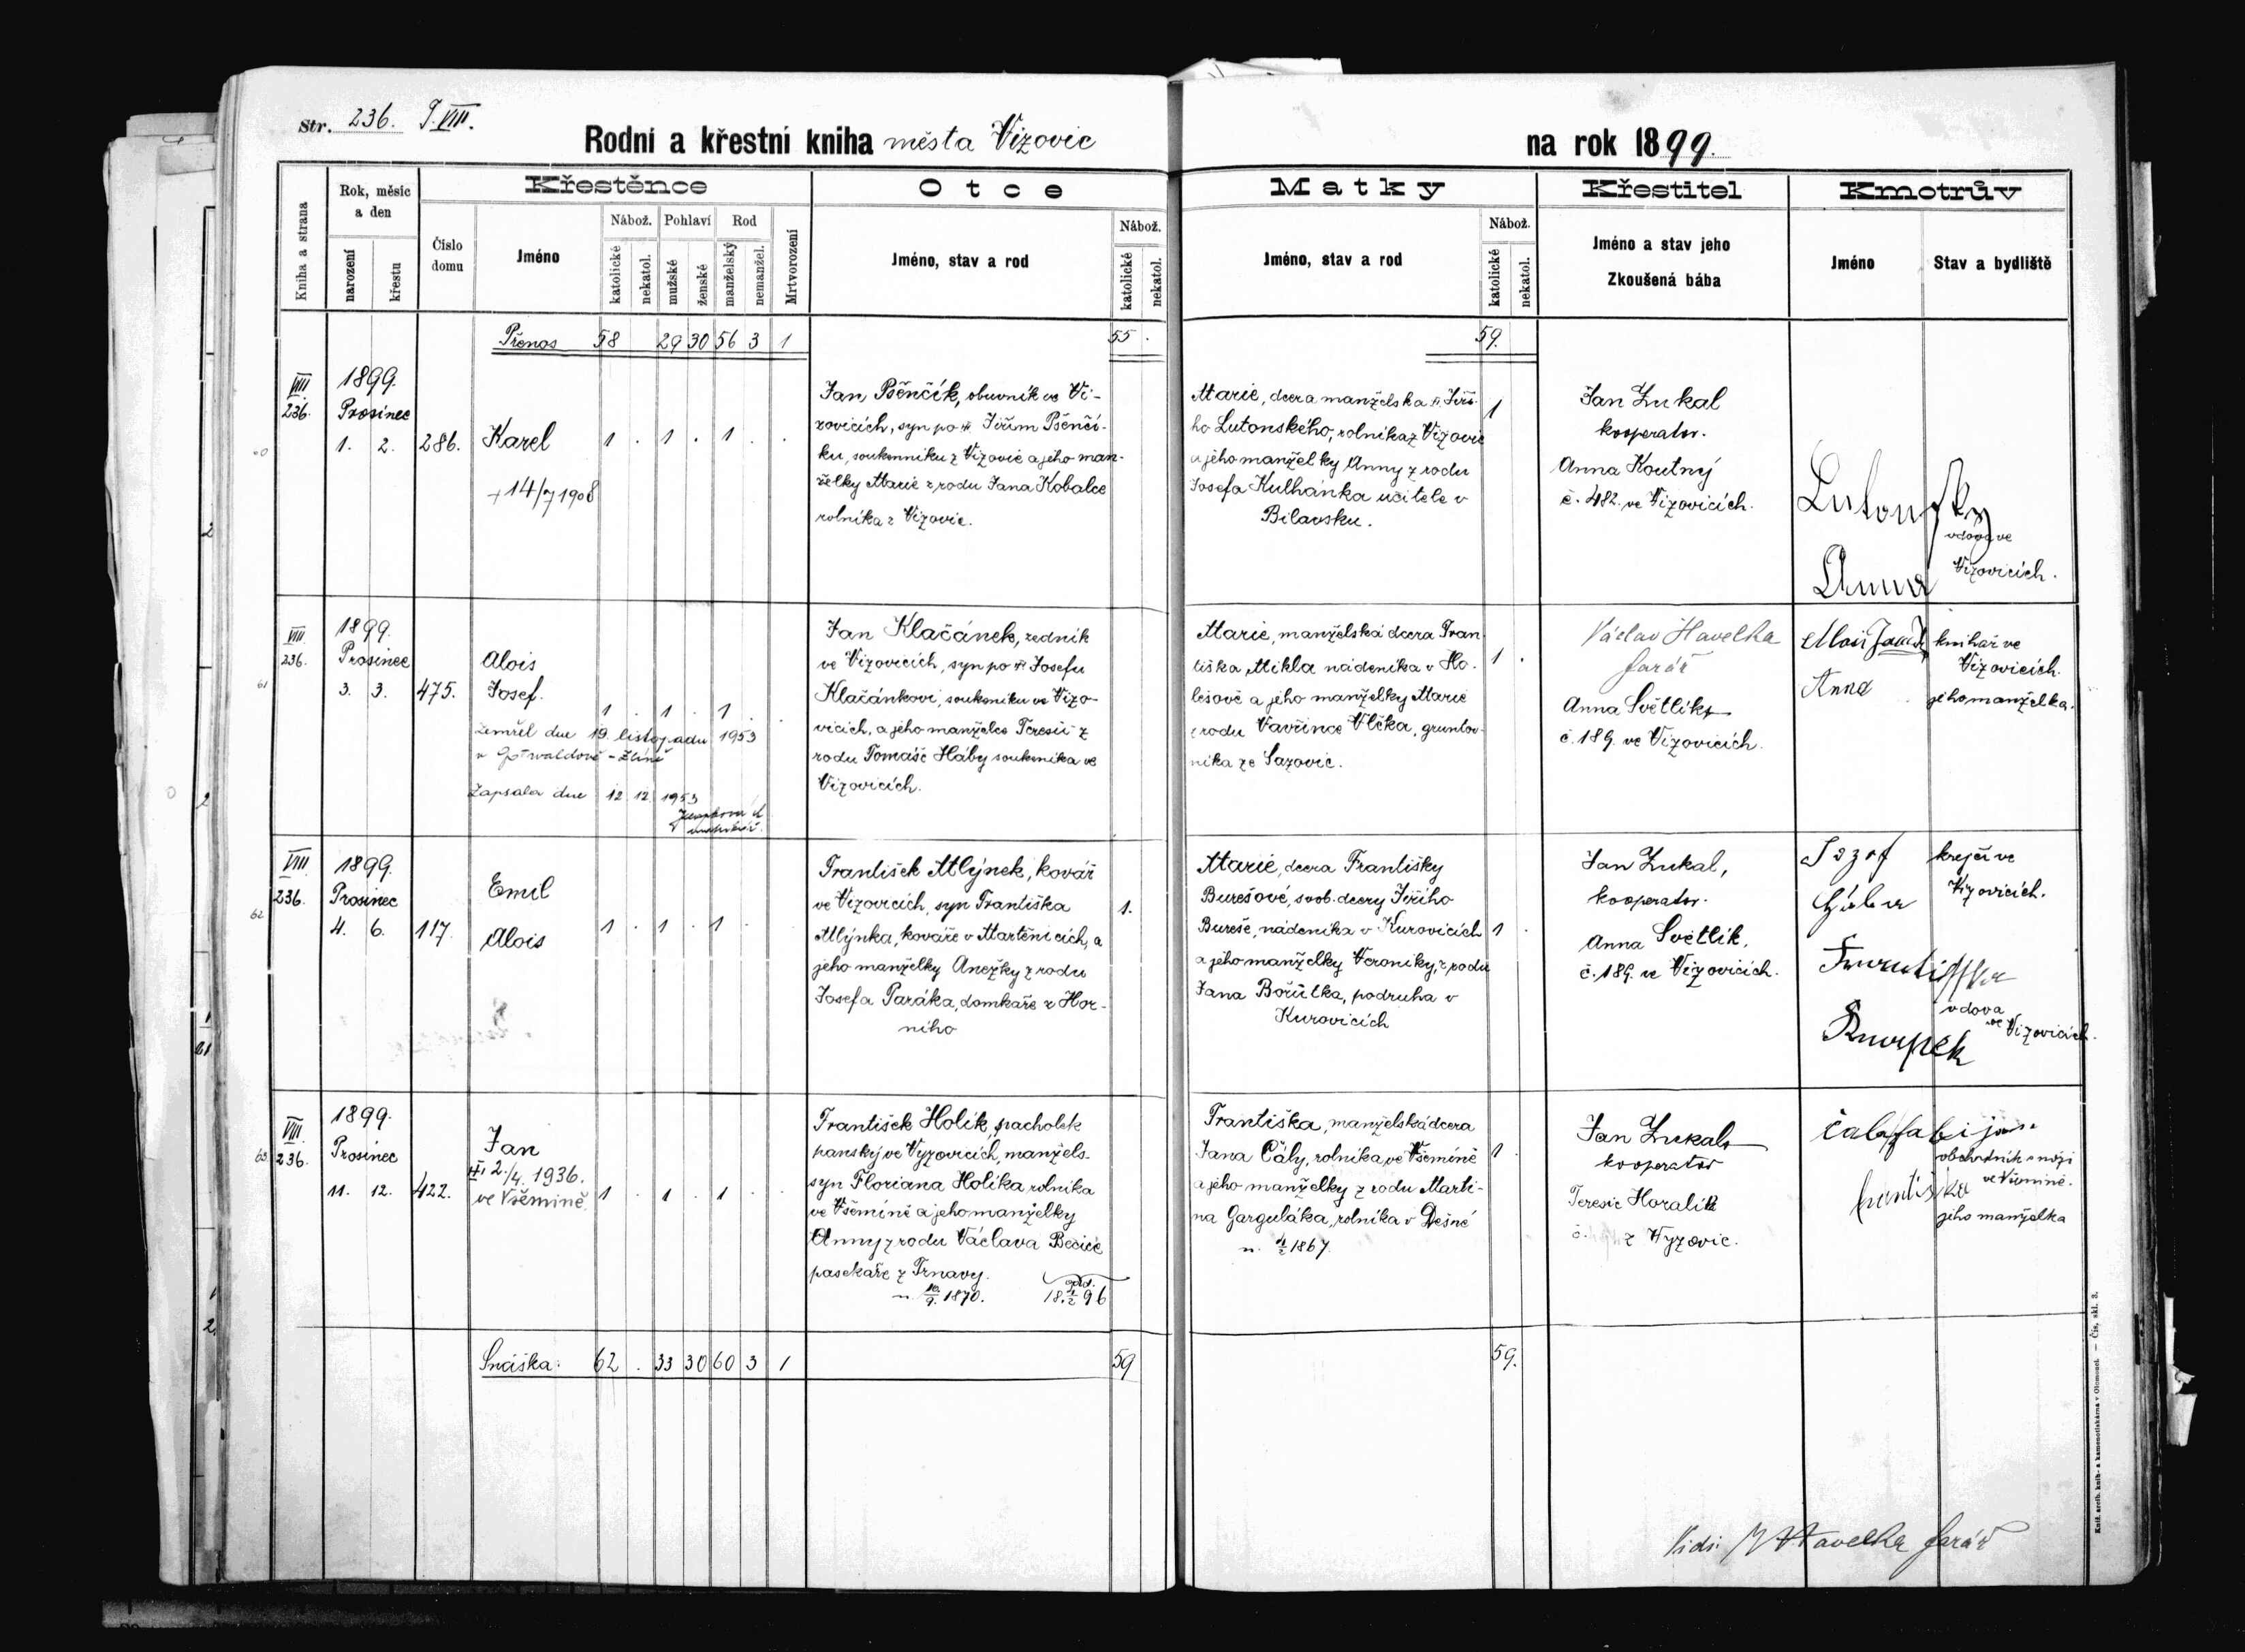 Str. 236. T. VIII.
Rodní a křestní kniha města Vizovic
na rok 1899.
Kniha a strana
Rok, měsíc
a den
narození
křestu
Číslo
domu
Křestěnce
Jméno
Nábož.
katolické
nekatol.
Pohlaví
mužské
ženské
Rod
manželský
nemanžel.
Mrtvorození
Otce
Jméno, stav a rod
Nábož.
katolické
nekatol.
Matky
Jméno, stav a rod
Nábož.
katolické
nekatol.
Křestitel
Jméno a stav jeho
Zkoušená bába
Kmotrův
Jméno
Stav a bydliště
Přenos 58 29 30 56 3 1 55 . 59.
60
VIII
236.
1899.
Prosinec
1. 2.
286.
Karel
1 . 1 . 1 . .
+ 14/7 1908
Jan Pšenčík, obuvník ve Vi-
zovicích, syn po Jiřím Pšenčí-
ku, soukenníku z Vizovic a jeho man-
želky Marie z rodu Jana Kobalce
rolníka z Vizovic.
Marie, dcera manželská Jiří-
ho Lutonského, rolníka z Vizovic
a jeho manželky Anny z rodu
Josefa Kulhánka učitele v
Bilavsku.
1
Jan Zukal
kooperator.
Anna Koutný
č. 482. ve Vizovicích.
Lutonsky
Anna
vdova ve
Vizovicích.
61
VIII
236.
1899.
Prosinec
3. 3.
475.
Alois
Josef.
1 . 1 . 1 . .
zemřel dne 19. listopadu 1953
v Gottwaldově - Zlíně
Zapsala dne 12. 12. 1953
Jan Klačánek, zedník
ve Vizovicích, syn po Josefu
Klačánkovi, soukeníku ve Vizo-
vicích, a jeho manželce Teresii z
rodu Tomáše Háby soukeníka ve
Vizovicích.
Marie, manželská dcera Fran-
tiška Mikla nádeníka v Ho-
lešově a jeho manželky Marie
z rodu Vavřince Vlčka, gruntov-
níka ze Sazovic.
1 .
Václav Havelka
farář
Anna Světlík
č. 189. ve Vizovicích.
Alois
Anna
knihař ve
Vizovicích.
jeho manželka.
62
VIII
236.
1899.
Prosinec
4. 6.
117.
Emil
Alois
1 . 1 . 1 . .
František Mlýnek, kovář
ve Vizovicích, syn Františka
Mlýnka, kováře v Martěnicích, a
jeho manželky Anežky z rodu
Josefa Paráka, domkaře z Hor-
ního
1.
Marie, dcera Františky
Burešové, svob. dcery Jiřího
Bureše, nádeníka v Kurovicích
a jeho manželky Veroniky, z rodu
Jana Bořůlka, podruha v
Kurovicích
1 .
Jan Zukal,
kooperator.
Anna Světlík.
č. 189. ve Vizovicích.
Jozef
Hába
krejčí ve
Vizovicích.
Františka
vdova
ve Vizovicích.
63
VIII.
236.
1899.
Prosinec
11. 12.
422.
Jan
2./4. 1936.
ve Všemině.
1 . 1 . 1 . .
František Holík, pacholek
panský ve Vyzovicích, manžels.
syn Floriana Holíka rolníka
ve Všemině a jeho manželky
Anny z rodu Václava Bečice
pasekaře z Trnavy.
n. 10/9. 1870.
odd.
18 4/2 96
Františka, manželská dcera
Jana Čály, rolníka ve Všemině
a jeho manželky z rodu Marti-
na Garguláka, rolníka v Dešné
n. 4/2 1867.
1 .
Jan Zukal
kooperator
Teresie Horalík
č. z Vyzovic.
Čala fabijan
obchodník s noži
ve Všemině.
frantiska
jeho manželka
Snáška: 62 . 33 30 60 3 1 59 59.
Vidi: Havelka farář
Kniž. arcib. knih- a kamenotiskárna v Olomouci. — Čís. skl. 3.